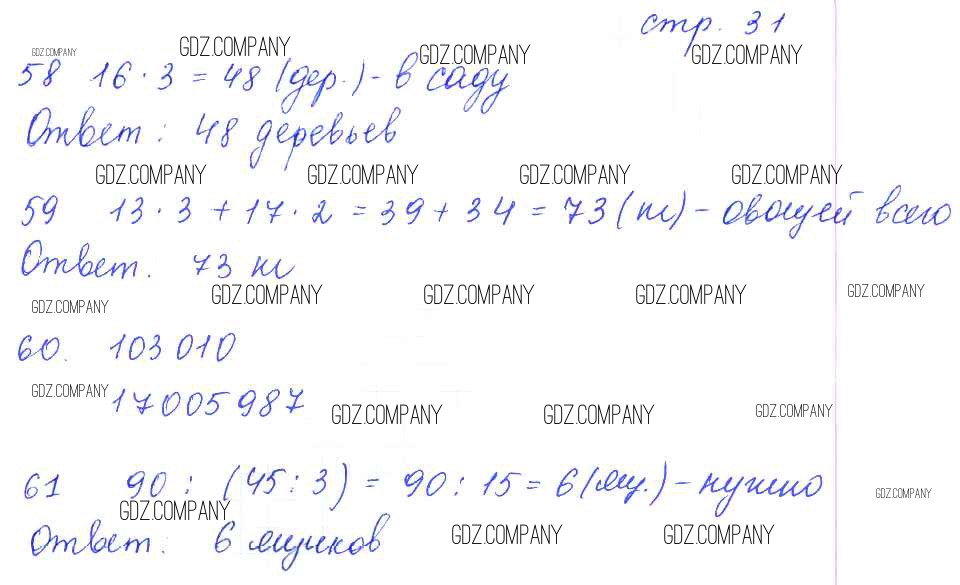 стр. 31
GDZ.COMPANY GDZ.COMPANY GDZ.COMPANY GDZ.COMPANY
58 16 · 3 = 48 (дер.) - в саду
Ответ: 48 деревьев
GDZ.COMPANY GDZ.COMPANY GDZ.COMPANY GDZ.COMPANY
59 13 · 3 + 17 · 2 = 39 + 34 = 73 (кг) - овощей всего
Ответ. 73 кг
GDZ.COMPANY GDZ.COMPANY GDZ.COMPANY GDZ.COMPANY GDZ.COMPANY
60. 103 010
GDZ.COMPANY 17 005 987 GDZ.COMPANY GDZ.COMPANY GDZ.COMPANY
61 90 : (45 : 3) = 90 : 15 = 6 (ящ.) - нужно
GDZ.COMPANY GDZ.COMPANY
Ответ: 6 ящиков GDZ.COMPANY GDZ.COMPANY